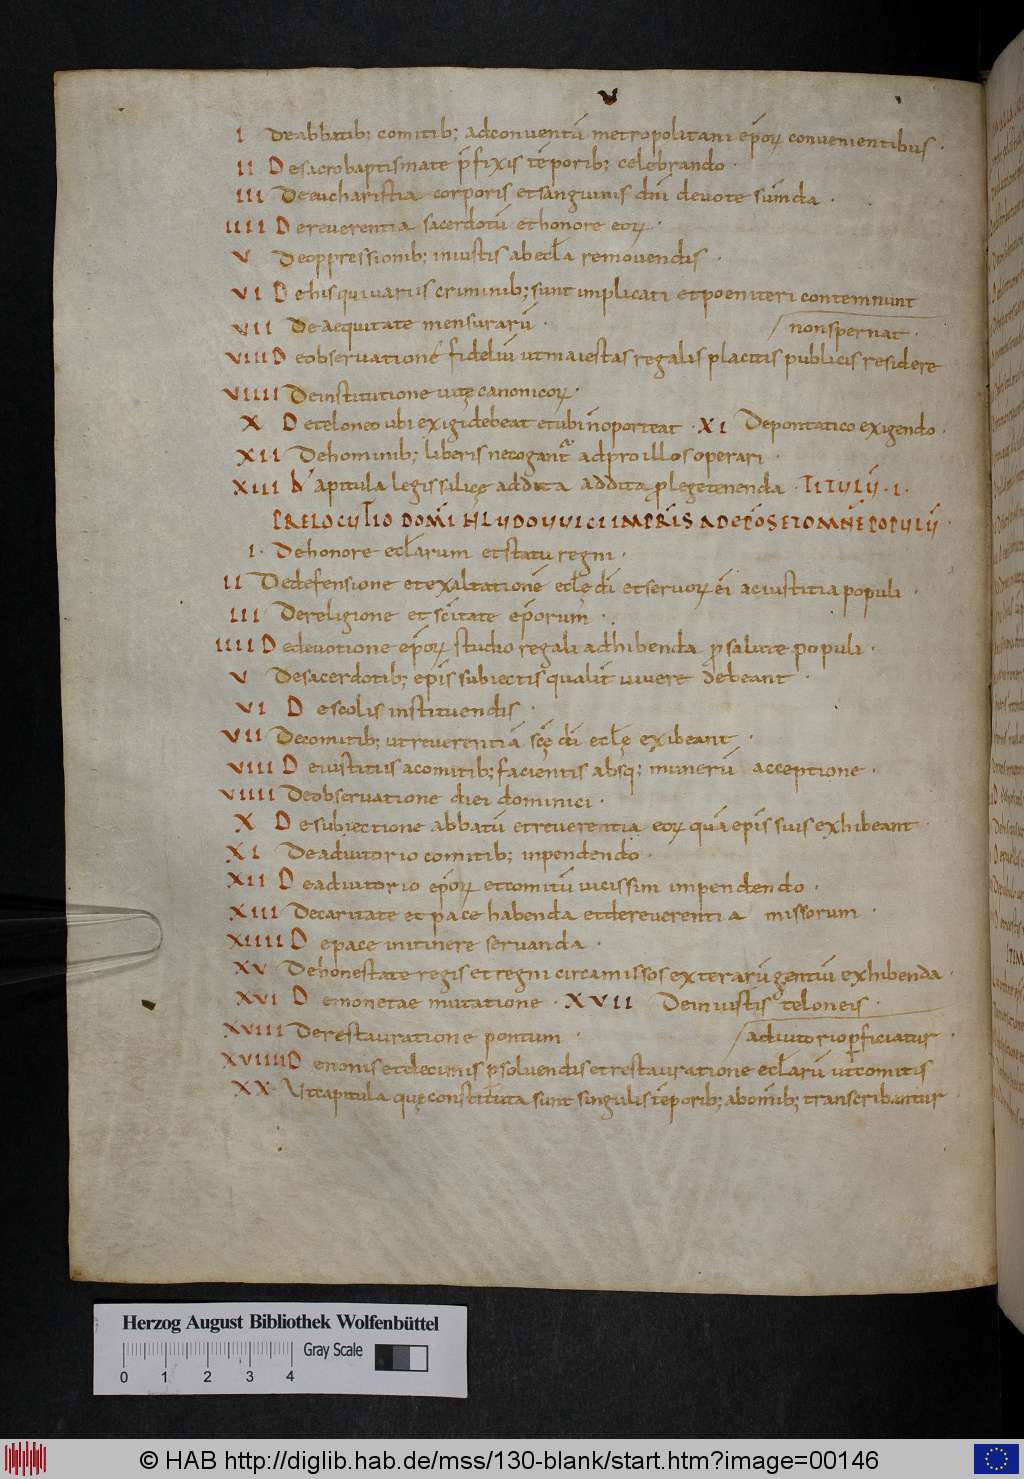 I Deabbatib; comitib; adconventū metropolitani ep̄oꝝ convenientibus .
II Desacrobaptismate p̄fixis tēporib; celebrando .
III Deeucharistia corporis etsanguinis dn̄i devote sum̄da .
IIII Dereverentia sacerdotū ethonore eoꝝ .
V Deoppressionib; iniustis abeccl̄a removendis .
VI Dehisquivariis criminib; sunt implicati etpoeniteri contemnunt
VII Deaequitate mensurarū . nonspernat .
VIII Deobservationē fideliū utmaiestas regalis placitis publicis residere
VIIII Deinstitutione vitę canonicoꝝ .
X Deteloneo ubi exigidebeat etubi n̄oporteat . XI Depontatico exigendo .
XII Dehominib; liberis necogant̄ adproillos operari .
XIII Capitula legis salicę addita addita ꝓlegetenenda . TITULI . I .
PRELOCUTIO DOMNI HLUDOUUICI IMPRIS ADEPOS ETOMNE POPULU .
I . Dehonore eccl̄arum etstatu regni .
II Dedefensione etexaltationē eccl̄ę dī etservoꝝ ēi aciustitia populi .
III Dereligione et scītate ep̄orum .
IIII Dedevotione ep̄oꝝ studio regali adhibenda ꝓsalute populi .
V Desacerdotib; epīs subiectis qualit̄ vivere debeant .
VI Descolis instituendis .
VII Decomitib; utreverentiā scę̄ dī eccl̄ę exibeant .
VIII Deiustitiis acomitib; facientis absq; munerū acceptione .
VIIII Deobservatione diei dominici .
X Desubiectione abbatū etreverentia eoꝝ quā epīs suis exhibeant .
XI Deadiutorio comitib; inpendendo .
XII Deadiutorio ep̄oꝝ etcomitū vicissim impendendo .
XIII Decaritate et pace habenda etdereverentia missorum .
XIIII Depace initinere servanda .
XV Dehonestate regis et regni circamissos exterarū gentiū exhibenda .
XVI Demonetae mutatione . XVII Deiniustis teloneis .
XVIII Derestauratione pontium . adiutorioꝑficiatur .
XVIIII Denonis etdecimis ꝑsolvendis etrestauratione eccl̄arū ut̄comitis
XX Utcapitula quę constituta sunt singulis tēporib; abomīb; transcribantur .
Herzog August Bibliothek Wolfenbüttel
Gray Scale
0 1 2 3 4
© HAB http://diglib.hab.de/mss/130-blank/start.htm?image=00146